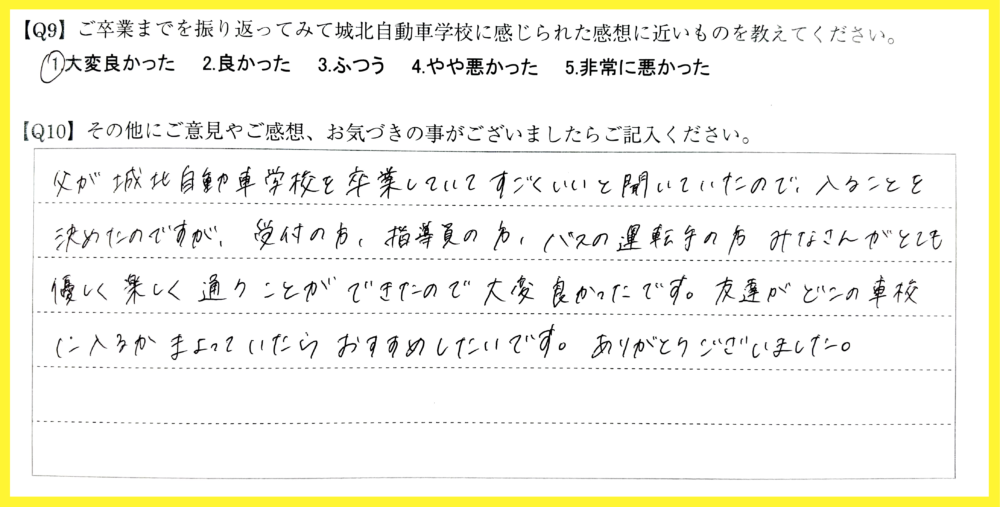 【Q9】ご卒業までを振り返ってみて城北自動車学校に感じられた感想に近いものを教えてください。
1.大変良かった 2.良かった 3.ふつう 4.やや悪かった 5.非常に悪かった
【Q10】その他にご意見やご感想、お気づきの事がございましたらご記入ください。
父が城北自動車学校を卒業していてすごくいいと聞いていたので、入ることを
決めたのですが、受付の方、指導員の方、バスの運転手の方みなさんがとても
優しく楽しく通うことができたので大変良かったです。友達がどこの車校
に入るかまよっていたらおすすめしたいです。ありがとうございました。